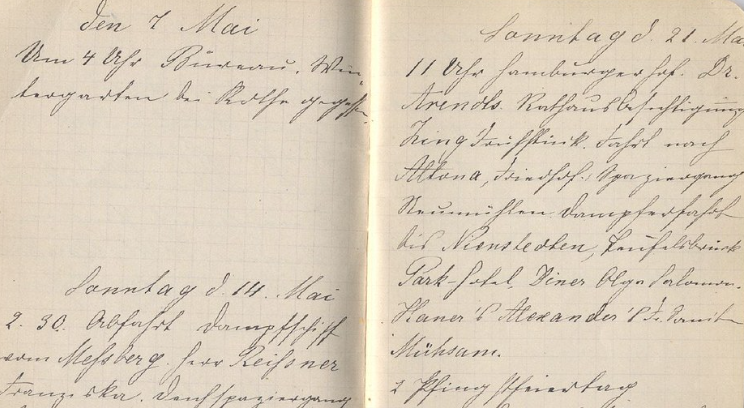 den 7 Mai
Um 4 Uhr Bureau. Win-
tergarten bei Rothe gegessen.
Sonntag d. 14. Mai
2.30. Abfahrt Dampfschiff
vom Messberg. Herr Reissner
Franziska.
Sonntag d. 21. Mai
11 Uhr Hamburgerhof. Dr.
Arendts. Rathausbesichtigung
Frühstück. Fahrt nach
Altona, Friedhof. Spaziergang
Neumühlen Dampferfahrt
bis Nienstedten, Teufelsbrück
Park-Hotel, Diner Olga Salomon.
Alexander's
Mühsam.
2 Pfingstfeiertag